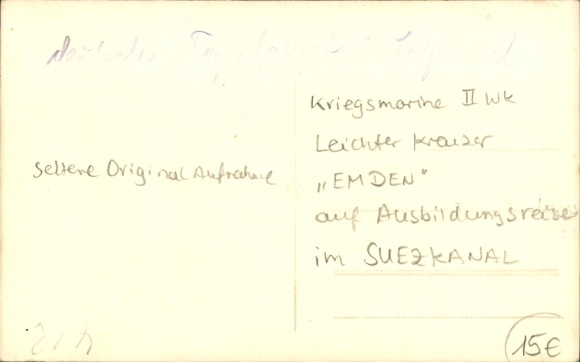 deutsches
seltene Original Aufnahme
Kriegsmarine II Wk
Leichter Kreuzer
„EMDEN“
auf Ausbildungsreise
im SUEZKANAL
15€